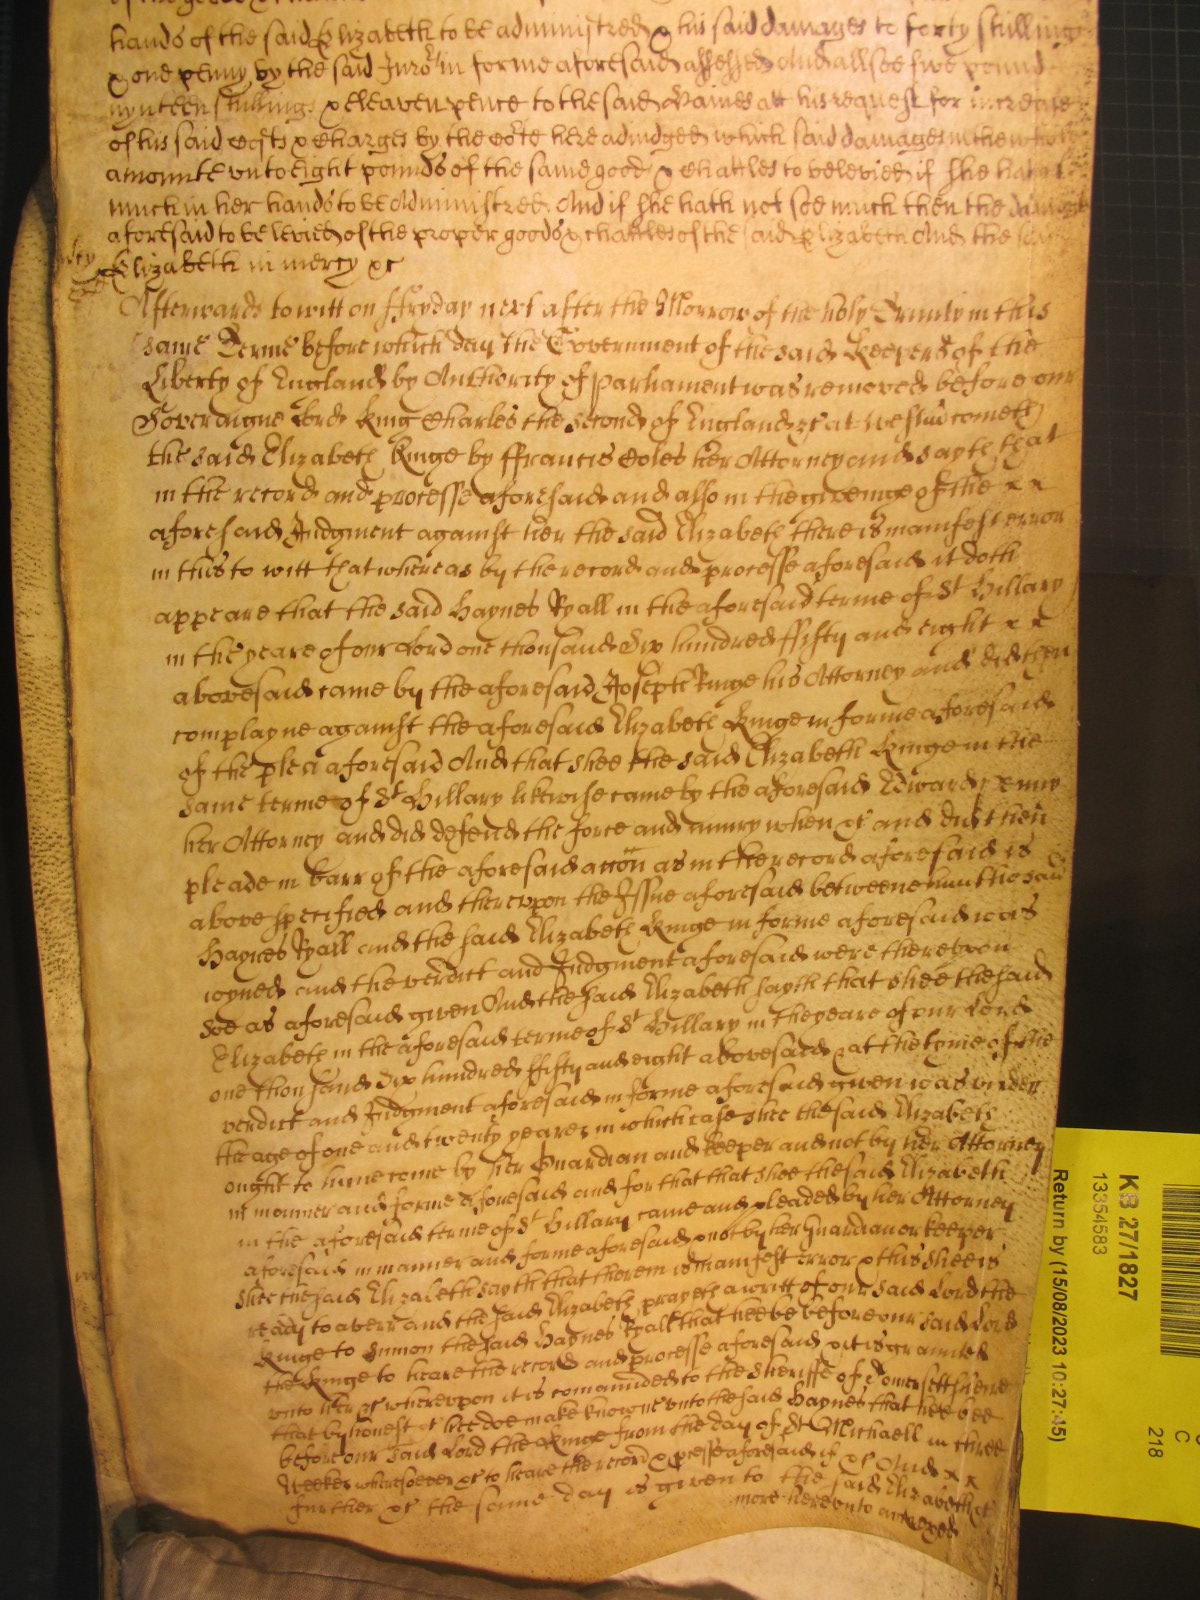 hands of the said Elizabeth to be administred & his said damages to forty shillings
& one penny by the said Juro^rs in forme aforesaid assessed And allsoe five pound
nynteen shillings & eleaven pence to the said Haines att his request for increase
of his said costs & charges by the Co^rte here adiudged which said damages in the whole
amounte unto Eight pounds of the same goods & chattles to be levied if she hath soe
much in her hands to be Administred And if she hath not soe much then the damages
aforesaid to be levied of the proper goods & chattles of the said Elizabeth And the said
Elizabeth in mercy &c
Afterwards to witt on ffryday next after the Morrow of the holy Trinity in this
same Terme before which day the Government of the said Keepers of the
Liberty of England by Authority of Parliament was removed before our
Soveraigne Lord King Charles the second of England &c at Westm^r cometh
the said Elizabeth Kinge by ffrancis Coles her Attorney and sayth that
in the record and processe aforesaid and also in the giveinge of the x x
aforesaid Judgment against her the said Elizabeth there is manifest error
in this to witt that whereas by the record and processe aforesaid it doth
appeare that the said Haynes Ryall in the aforesaid terme of S^t Hillary
in the yeare of our Lord one thousand Six hundred ffifty and eight x x
abovesaid came by the aforesaid Joseph Ringe his Attorney and did then
complayne against the aforesaid Elizabeth Kinge in forme aforesaid
of the plea aforesaid And that shee the said Elizabeth Kinge in the
same terme of S^t Hillary likewise came by the aforesaid Edward
her Attorney and did defend the force and iniury when &c and did then
pleade in barr of the aforesaid accon as in the record aforesaid is
above specified and thereupon the Issue aforesaid betweene him the said
Haynes Ryall and the said Elizabeth Kinge in forme aforesaid was
ioyned and the verdict and Judgment aforesaid were thereupon
soe as aforesaid given And the said Elizabeth sayth that shee the said
Elizabeth in the aforesaid terme of S^t Hillary in the yeare of our Lord
one thousand Six hundred ffifty and eight abovesaid & at the tyme of the
verdict and Judgment aforesaid in forme aforesaid given was under
the age of one and twenty yeares in which case shee the said Elizabeth
ought to have come by her Guardian and keeper and not by her Attorney
in manner and forme aforesaid and for that that shee the said Elizabeth
in the aforesaid terme of S^t Hillary came and pleaded by her Attorney
aforesaid in manner and forme aforesaid & not by her Guardian or keeper
shee the said Elizabeth sayth that therein is manifest error & this shee is
ready to averr and the said Elizabeth prayeth a writt of our said Lord the
Kinge to sumon the said Haynes Ryall that hee be before our said Lord
the Kinge to heare the record and processe aforesaid & it is graunted
unto her &c whereupon it is comaunded to the Sheriffe of Somersettshire
that by honest &c hee doe make knowne unto the said Haynes that hee bee
before our said Lord the Kinge from the day of S^t Michaell in three
Weekes wheresoever &c to heare the record & processe aforesaid if &c And x x
further &c the same day is given to the said Elizabeth &c
more hereunto annexed
KB 27/1827
13354583
Return by (15/08/2023 10:27:45)
C
218